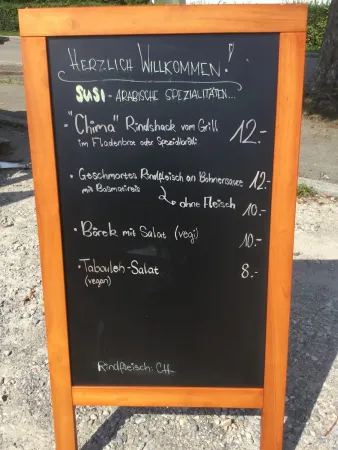 HERZLICH WILLKOMMEN!
SUSI - ARABISCHE SPEZIALITÄTEN...
• "Chima" Rindshack vom Grill 12.-
im Fladenbrot oder Spezialbrot
• Geschmortes Rindfleisch an Bohnensauce 12.-
mit Basmatireis
ohne Fleisch 10.-
• Börek mit Salat (vegi) 10.-
• Tabouleh-Salat 8.-
(vegan)
Rindfleisch: CH